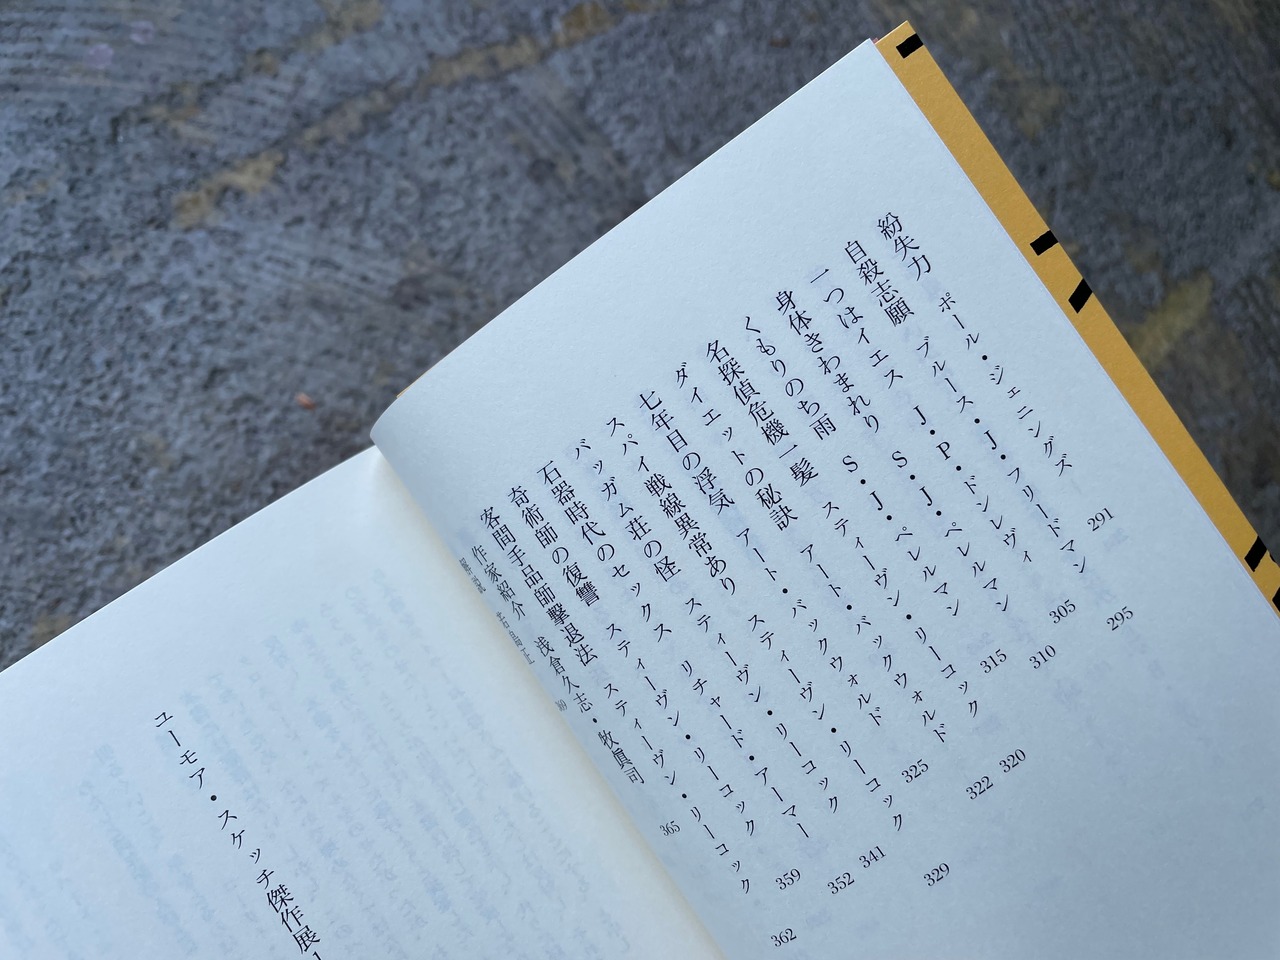 紛失力 ポール・ジェニングズ 291
自殺志願 ブルース・J・フリードマン 295
一つはイエス J・P・ドンレヴィ 305
身体きわまれり S・J・ペレルマン 310
くもりのち雨 S・J・ペレルマン 315
名探偵危機一髪 スティーヴン・リーコック 320
ダイエットの秘訣 アート・バックウォルド 322
七年目の浮気 アート・バックウォルド 325
スパイ戦線異常あり スティーヴン・リーコック 329
バッガム荘の怪 スティーヴン・リーコック 341
石器時代のセックス リチャード・アーマー 352
奇術師の復讐 スティーヴン・リーコック 359
客間手品師撃退法 スティーヴン・リーコック 362
作家紹介 浅倉久志・牧眞司 365
解説 若島正
ユーモア・スケッチ傑作展1